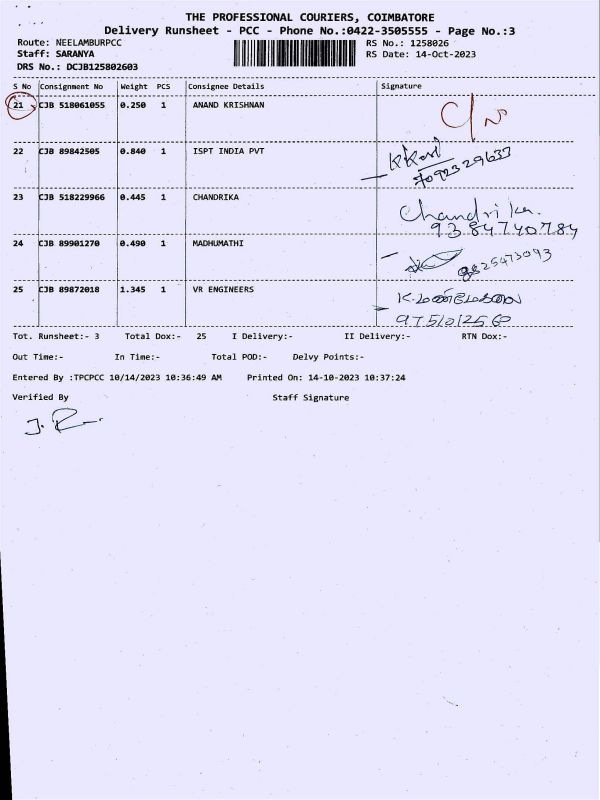 THE PROFESSIONAL COURIERS, COIMBATORE
Delivery Runsheet - PCC - Phone No.:0422-3505555 - Page No.:3
Route: NEELAMBURPCC RS No.: 1258026
Staff: SARANYA RS Date: 14-Oct-2023
DRS No.: DCJB125802603
S No Consignment No Weight PCS Consignee Details Signature
21 CJB 518061055 0.250 1 ANAND KRISHNAN
22 CJB 89842505 0.840 1 ISPT INDIA PVT
7092329637
23 CJB 518229966 0.445 1 CHANDRIKA
Chandrika.
9384740784
24 CJB 89901270 0.490 1 MADHUMATHI
9825473093
25 CJB 89872018 1.345 1 VR ENGINEERS
Tot. Runsheet:- 3 Total Dox:- 25 I Delivery:- II Delivery:- RTN Dox:-
Out Time:- In Time:- Total POD:- Delvy Points:-
Entered By :TPCPCC 10/14/2023 10:36:49 AM Printed On: 14-10-2023 10:37:24
Verified By Staff Signature